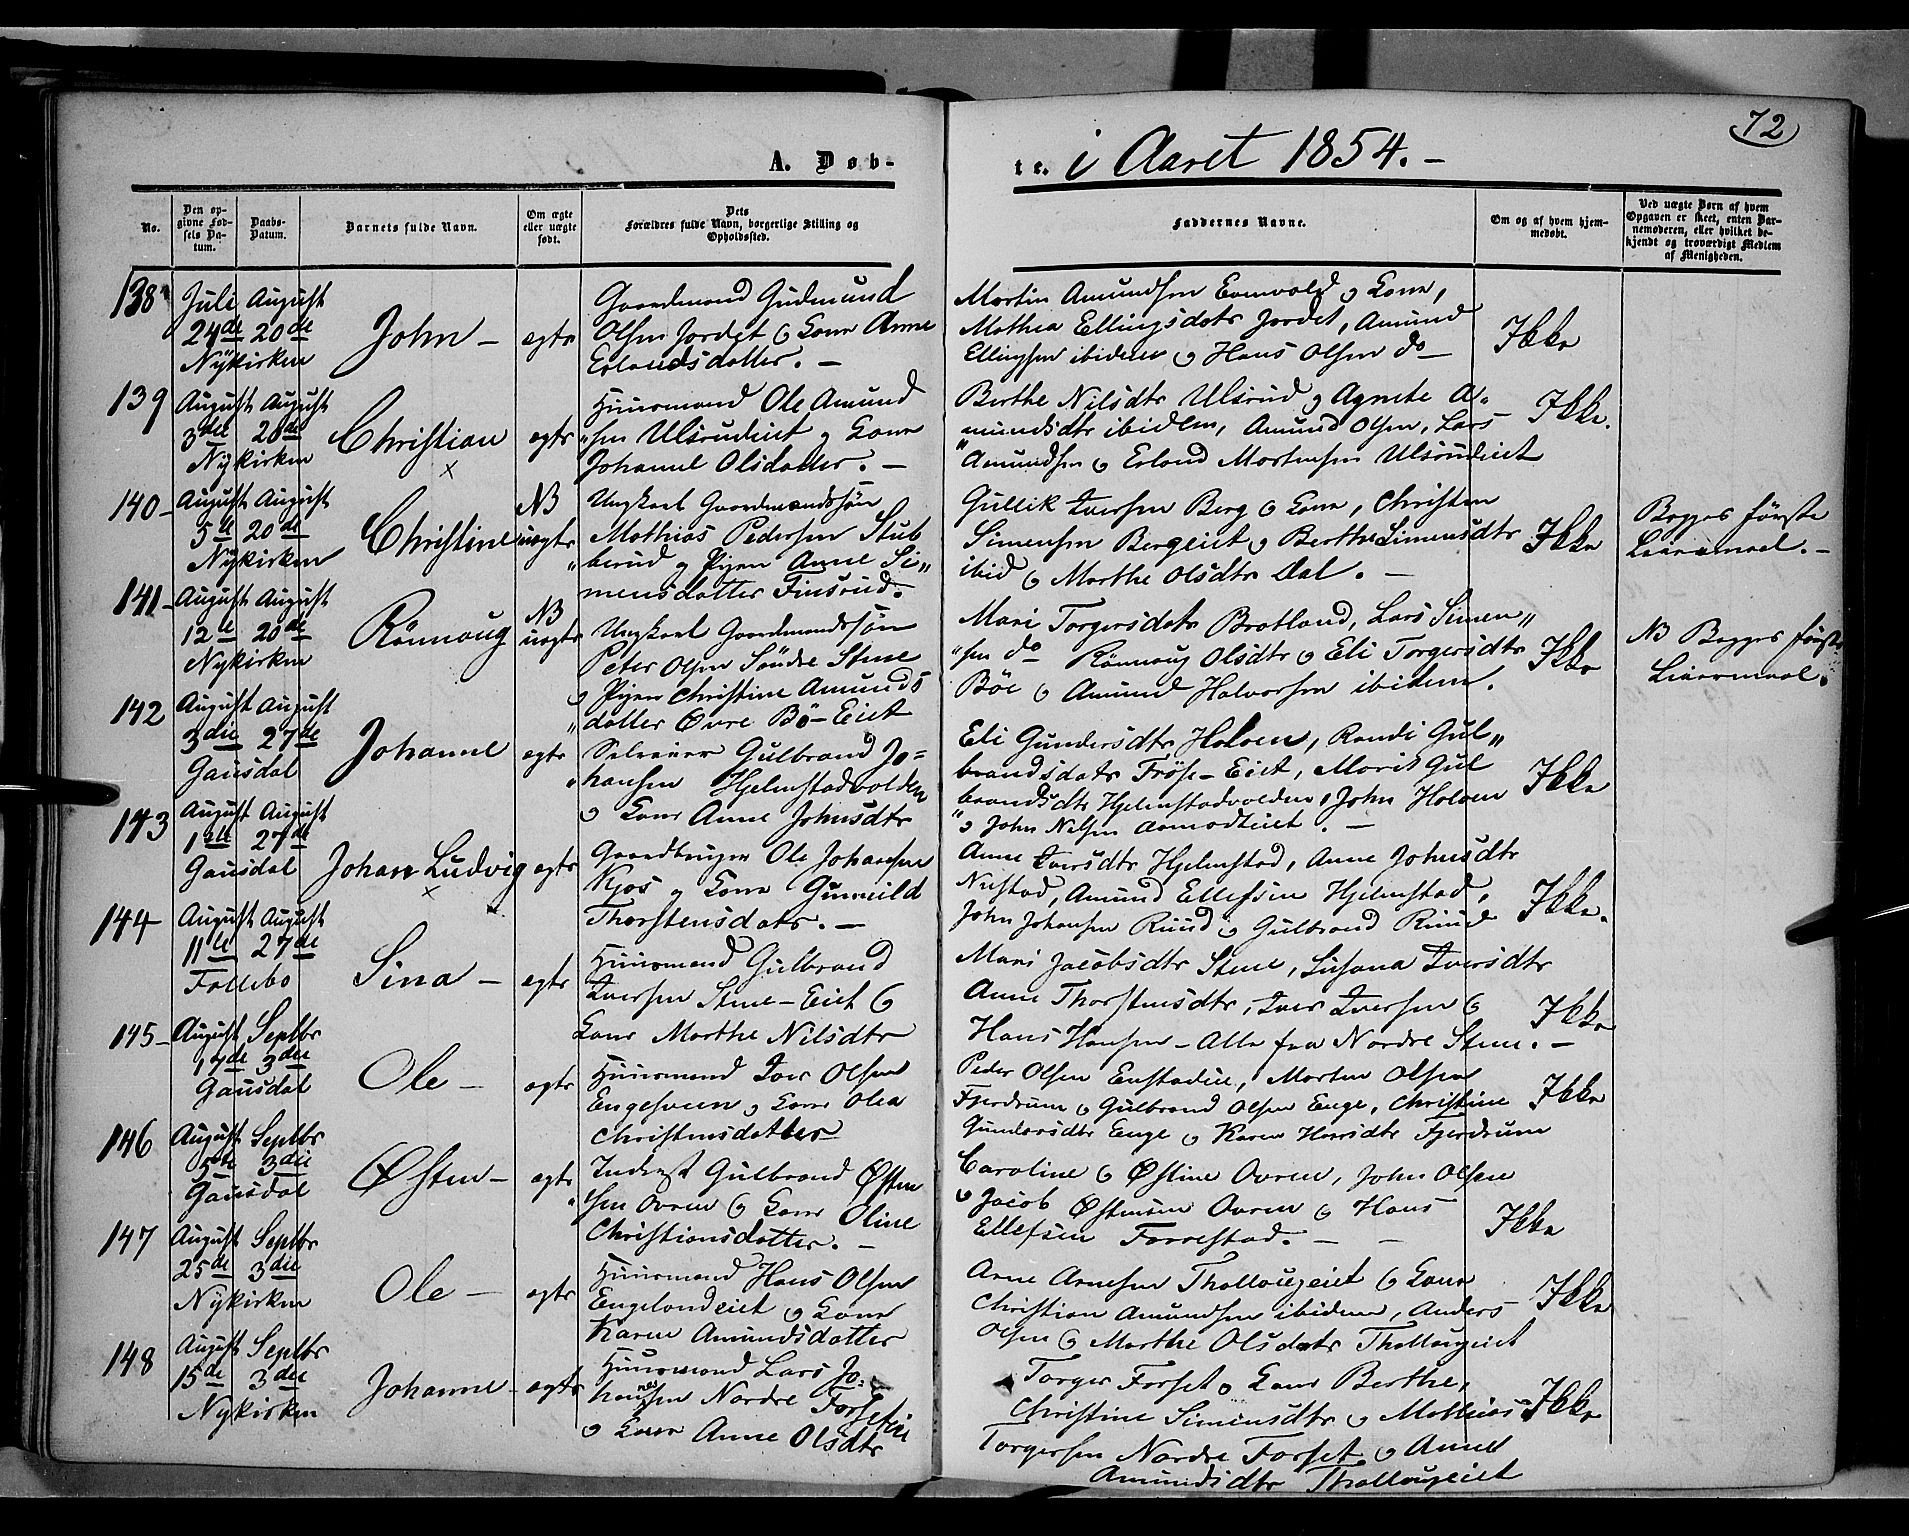 72
A. Døb-
te. i Aaret 1854. -
No.
Den op-
givne Fød-
sels Da-
tum.
Daabs-
Datum.
Barnets fulde Navn.
Om ægte
eller uægte
født.
Dets
Forældres fulde Navn, borgerlige Stilling og
Opholdssted.
Faddernes Navne.
Om og af hvem hjem-
medøbt.
Ved uægte Børn af hvem
Opgaven er skeet, enten Bar-
nemoderen, eller hvilket be-
kjendt og troværdigt Medlem
af Menigheden.
138
Juli August
24de 20de
Nÿkirken
John -
ægte
Gaardmand Gudmund
Olsen Jordet & Kone Anne
Erlandsdatter. -
Martin Amundsen Evenvold & Kone,
Mathea Ellingsdatr Jordet, Amund
Ellingsen ibidem & Hans Olsen do
Ikke
139
August August
3die 20de
Nykirken
Christian
x
ægte
Huusmand Ole Amund
"sen Ulsrudeiet & Kone
Johanne Olsdatter. -
Berthe Nilsdtr Ulsrud & Agnete A-
mundsdtr ibidem, Amund Olsen, Lars
"Amundsen & Erland Mortensen Ulsrudeiet
Ikke.
140 -
August August
5te 20de
Nykirken
Christine
NB
uægte
Ungkarl Gaardmandssøn
Mathias Pedersen Stub
"berud & Pigen Anne Si"
mensdatter Finsrud.
Gullik Iversen Berg & Kone, Christen
Simensen Bergeiet & Berthe Simensdtr
ibid & Marthe Olsdtr Dal. -
Ikke
Begges første
Leiermaal. -
141 -
August August
12te 20de
Nykirken
Rönnoug
NB
uægte
Ungkarl Gaardmandssøn
Peter Olsen Søndre Stene
& Pigen Christine Amunds
"datter Øvre Bö-Eiet
Mari Torgersdatr Brotland, Lars Simen"
"sen do Rönnoug Olsdtr & Eli Torgersdtr
Böe & Amund Halvorsen ibidem.
Ikke
NB Begges første
Leiermaal.
142
August August
3die 27de
Gausdal
Johanne
ægte
Selveier Gulbrand Jo-
"hansen Hjelmstadvolden
& Kone Anne Johnsdtr
Eli Gundersdtr Holven, Randi Gul"
brandsdatr Fröse-Eiet, Marit Gul
brandsdtr Hjelmstadvolden, John Holven
"& John Nilsen Aamodteiet. -
Ikke
143
August August
1ste 27de
Gausdal
Johan Ludvig
x
ægte
Gaardbruger Ole Johansen
Kjos & Kone Gunnild
Thorstensdatr. -
Anne Iversdtr Hjelmstad, Anne Johnsdtr
Nustad, Amund Ellefsen Hjelmstad,
John Johansen Ruud & Gulbrand Ruud
Ikke.
144
August August
11te 27de
Follebo
Sina -
ægte
Huusmand Gulbrand
Iversen Stene-Eiet &
Kone Marthe Nilsdtr
Mari Jacobsdtr Stene, Susana Iversdtr
Anne Thorstensdtr, Iver Iversen &
Hans Hansen - Alle fra Nordre Stene. -
Ikke
145 -
August Septbr
17de 3die
Gausdal
Ole -
ægte
Huusmand Iver Olsen
Engesveen & Kone Olea
Christensdatter
Peder Olsen Enstadeie, Morten Olsen
Fjerdrum & Gulbrand Olsen Enge, Christine
Gundersdtr Enge & Karen Hansdtr Fjerdrum
Ikke
146
August Septbr
5te 3die
Gausdal
Østen -
ægte
Inderst Gulbrand Østen
"sen Ovren & Kone Oline
Christiansdatter. -
Caroline & Østine Ovren, John Olsen
& Jacob Østensen Ovren & Hans
Ellefsen Forrestad. - -
Ikke
147
August Septbr
25de 3die
Nÿkirken
Ole -
ægte
Huusmand Hans Olsen
Engelandeiet & Kone
Karen Amundsdatter
Arne Arnesen Thallougeiet & Kone
Christian Amundsen ibidem, Anders
Olsen & Marthe Olsdatr Thallougeiet
Ikke
148
August Septbr
15de 3die
Nykirken
Johanne -
ægte
Huusmand Lars Jo-
hannessen Nordre Forseteie
& Kone Anne Olsdtr
Torger Forset & Kone Berthe,
Christine Simensdtr & Mathias
Torgersen Nordre Forset & Anne
Amundsdtr Thallougeiet
Ikke